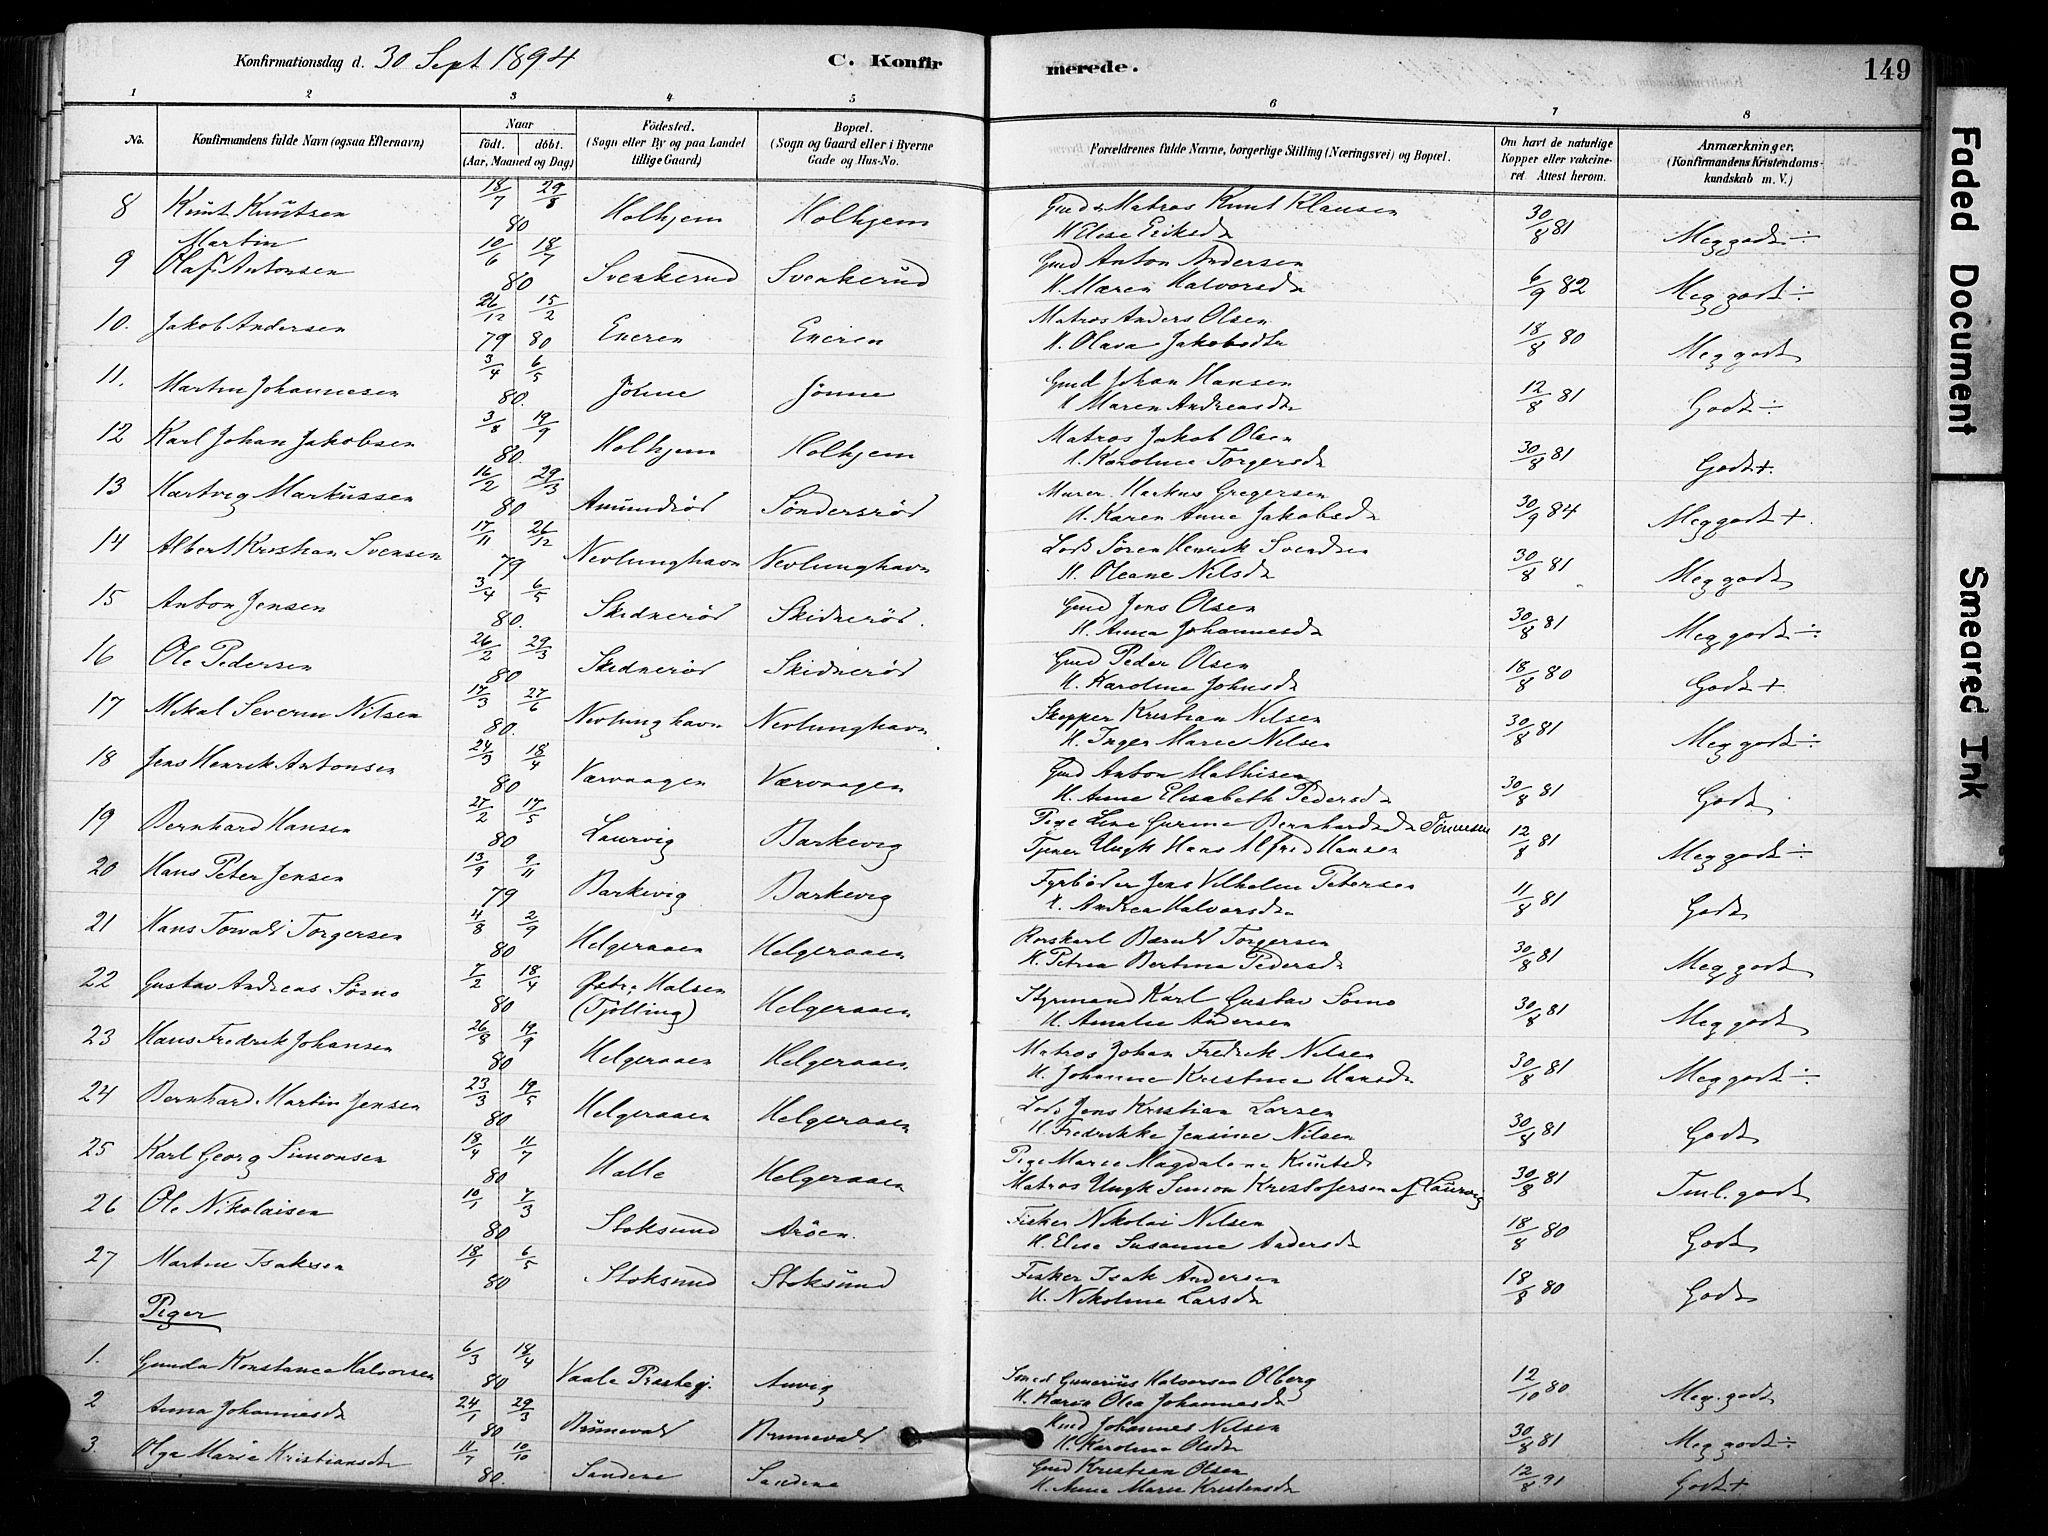 Konfirmationsdag d. 30 Sept 1894 C. Konfirmerede. 149
1 2 3 4 5 6 7 8
No. Konfirmandens fulde Navn (ogsaa Efternavn) Naar født. døbt. (Aar, Maaned og Dag) Födested. (Sogn eller By og paa Landet tillige Gaard) Bopæl. (Sogn og Gaard eller i Byerne Gade og Hus-No. Forældrenes fulde Navne, borgerlige Stilling (Næringsvei) og Bopæl. Om havt de naturlige Kopper eller vakcineret Attest herom. Anmærkninger. (Konfirmandens Kristendomskundskab m. V.)
8 Knut Knutsen 18/7 29/8 80 Holhjem Holhjem Gmd & Matros Knut Klausen
H Elise Eriksdr 30/8 81 Meg godt ÷
9 Olaf Martin Antonsen 10/6 18/7 80 Svenkerud Svenkerud Gmd Anton Andersen
H. Maren Halvorsdr 6/9 82 Meg godt ÷
10. Jakob Andersen 26/12 79 15/2 80 Eneren Eneren Matros Anders Olsen
H. Olava Jakobsdtr 18/8 80 Meg godt
11. Martin Johannesen 3/4 6/5 80. Jönne Jönne Gmd Johan Hansen
H Maren Andreasdr 12/8 81 Godt ÷
12 Karl Johan Jakobsen 3/8 19/9 80. Holhjem Holhjem Matros Jakob Olsen
H. Karoline Torgersdr 30/8 81 Godt +.
13 Hartvig Markussen 16/2 29/3 80 Amundröd Söndersröd Murer. Markus Gregersen
H. Karen Anne Jakobsdr 30/9 84 Meg godt +.
14 Albert Kristian Svensen 17/11 26/12 79 Nevlunghavn Nevlunghavn Lods Sören Henrik Svendsen
H. Oleane Nilsdr 30/8 81 Meg godt
15 Anton Jensen 3/4 6/5 80. Skidneröd Skidneröd. Gmd Jens Olsen
H. Anna Johannesdr 30/8 81 Meg godt ÷
16 Ole Pedersen 26/2 29/3 80 Skidneröd Skidneröd Gmd Peder Olsen
H. Karoline Johnsdr 18/8 80 Godt +
17 Mikal Severin Nilsen 17/3 27/6 80. Nevlunghavn Nevlunghavn Skipper Kristian Nilsen
H. Inger Marie Nilsen 30/8 81 Meg godt ÷
18 Jens Henrik Antonsen 24/3 18/4 80 Værvaagen Værvaagen Gmd Anton Mathisen
H. Anne Elisabeth Pedersdr 30/8 81 Godt
19 Bernhard Hansen 27/2 17/5 80 Laurvig Barkevig Pige Lina Gurine Bernhardsdr Tönnesen
Tjener Ungk Hans Alfred Hansen 12/8 81 Meg godt ÷
20 Hans Peter Jensen 13/9 9/11 79 Barkevig Barkevig Fyrböder Jens Vilhelm Petersen
H. Andrea Halvorsdr 11/8 81 Godt
21 Hans Torvald Torgersen 4/8 2/9 80 Helgeraaen Helgeraaen Rorskarl Bærnt Torgersen
H. Petrea Bertine Pedersdr 30/8 81 Meg godt
22 Gustav Andreas Sömo 7/2 18/4 80 Østr. Halsen (Tjölling) Helgeraaen Styrmand Karl Gustav Sömo
H. Amalie Andersen 30/8 81 Meg godt
23 Hans Fredrik Johansen 26/8 19/9 80 Helgeraaen Helgeraaen Matros Johan Fredrik Nilsen
H. Johanne Kristine Hansdr 30/8 81 Meg godt ÷
24 Bernhard Martin Jensen 23/3 19/5 80 Helgeraaen Helgeraaen Lods Jens Kristian Larsen
H. Fredrikke Jensine Nilsen 30/8 81 Godt
25 Karl Georg Simonsen 18/4 11/7 80 Halle Helgeraaen Pige Marie Magdalene Knutsdr
Matros Ungk Simon Kristofersen af Laurvig 30/8 81 Tml. godt
26 Ole Nikolaisen 10/1 7/3 80 Stoksund Aröen. Fisker Nikolai Nilsen
H. Elise Susanne Andersdr 18/8 80 Godt
27 Martin Isaksen 18/1 6/5 80 Stoksund Stoksund Fisker Isak Andersen
H. Nikoline Larsdr 18/8 80 Godt
Piger
1. Gunda Konstance Halvorsen 6/3 18/4 80 Vaale Prestegj. Anvig Smed Gunerius Halvorsen Olberg
H. Maria Olea Johannesdr 12/10 80 Meg. godt
2 Anna Johannesdr 24/1 29/3 80 Brunevald Brunevald Gmd Johannes Nilsen
H. Karoline Olsdr 30/8 81 Meg godt ÷
3. Olga Marie Kristiansdr 11/7 10/10 80. Sandene Sandene Gmd Kristian Olsen
H. Anne Marie Kristensdr 12/8 91 Godt +
Faded Document
Smeared Ink